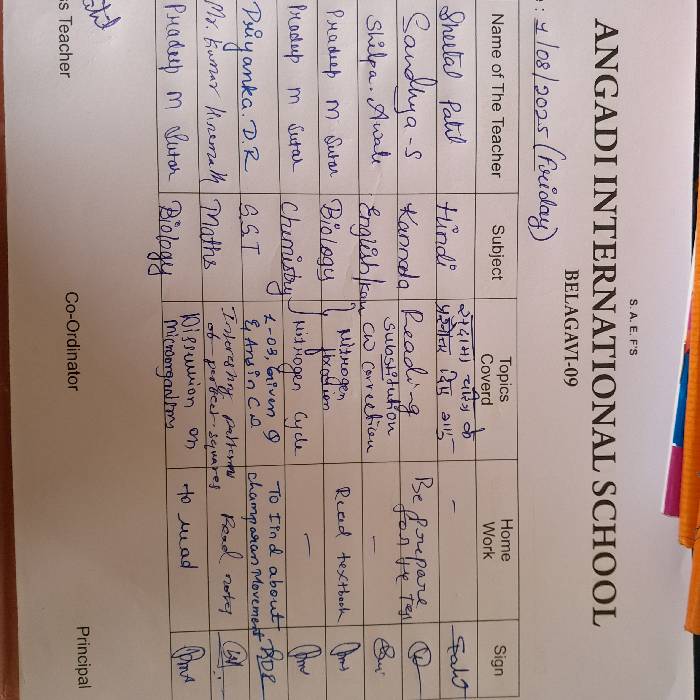 S.A.E.F'S
ANGADI INTERNATIONAL SCHOOL
BELAGAVI-09
: 1/08/2025 (Friday)
Name of The Teacher Subject Topics Coverd Home Work Sign
Sheetal Patil Hindi -
Sandhya-S Kannada Reading Be prepare for the Test
Shilpa. Awale English/kan substitution CW correction -
Pradeep M Sutar Biology Nitrogen fixation Read textbook
Pradeep M Sutar Chemistry Nitrogen cycle -
Priyanka. D. R S.ST 1-03, Given Q & Ans in CB To Find about champaran Movement
Mr. Kumar Hiremath Maths Interesting patterns of perfect squares Read notes
Pradeep M Sutar Biology Discussion on microorganisms to read
ss Teacher Co-Ordinator Principal